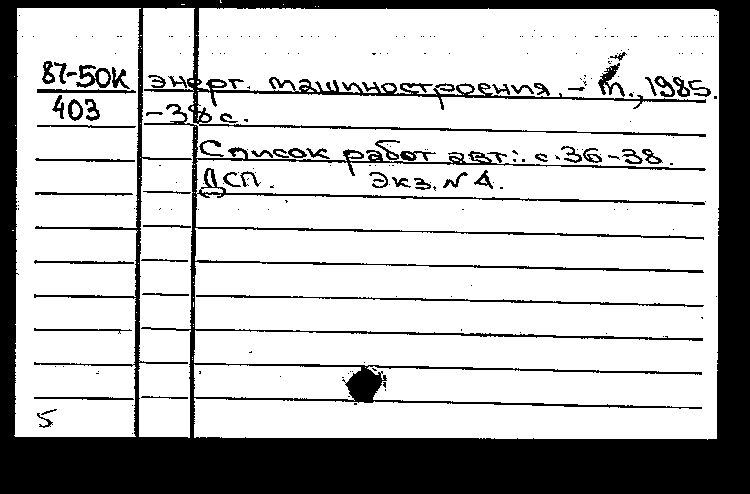 87-50К энерг. машиностроения. - М., 1985.
403 -38 с.
Список работ авт.: с.36-38.
ДСП. Экз. N 4.
5